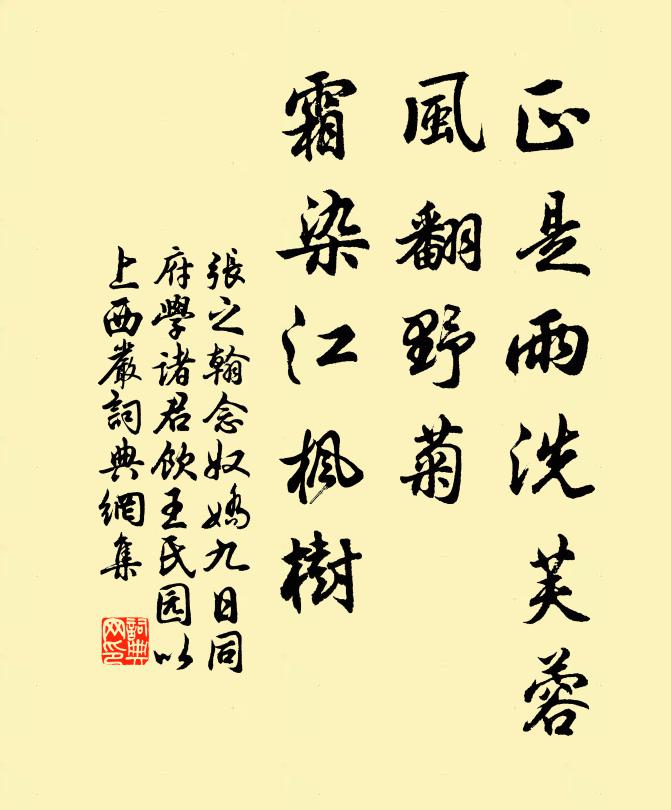 正是雨洗芙蓉
風翻野菊
霜染江楓樹
張之翰念奴嬌九日同
府學諸君飲王氏园以
上西巖詞典網集
詞典
网印